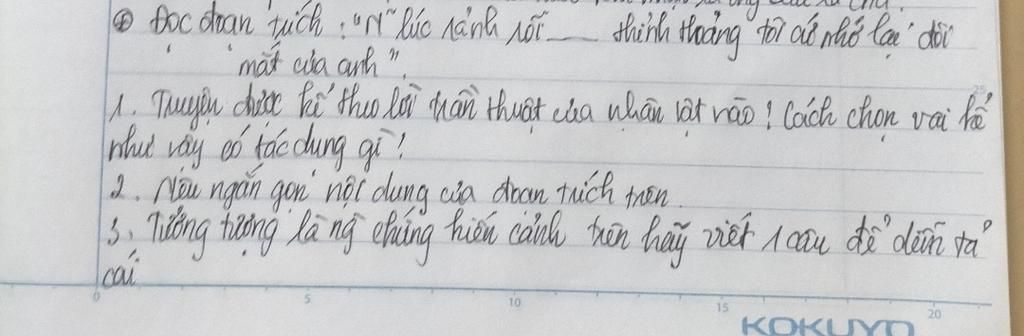 ④ Đọc đoạn trích: "N~ lúc rảnh rỗi ___ thỉnh thoảng tôi cứ nhớ lại đôi
mắt của anh".
1. Truyện được kể theo lời trần thuật của nhân vật nào? Cách chọn vai kể
như vậy có tác dụng gì?
2. Nêu ngắn gọn nội dung của đoạn trích trên.
3. Tưởng tượng là ng~ chứng kiến cảnh trên hãy viết 1 câu để diễn tả
cái
0 5 10 15 20
KOKUYO